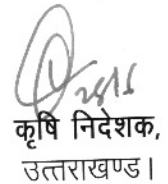 कृषि निदेशक,
उत्तराखण्ड।